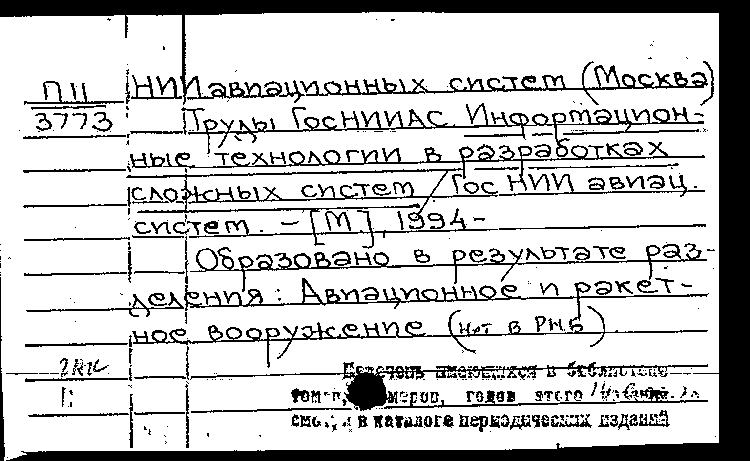 П11 НИИ авиационных систем (Москва)
3773 Труды ГосНИИАС. Информацион-
ные технологии в разработках
сложных систем / Гос НИИ авиац.
систем. – [М], 1994-
Образовано в результате раз-
деления: Авиационное и ракет-
ное вооружение (нет в РНБ).
Перечень имеющихся в библиотеке
томов, номеров, годов этого издания
смотри в каталоге периодических изданий